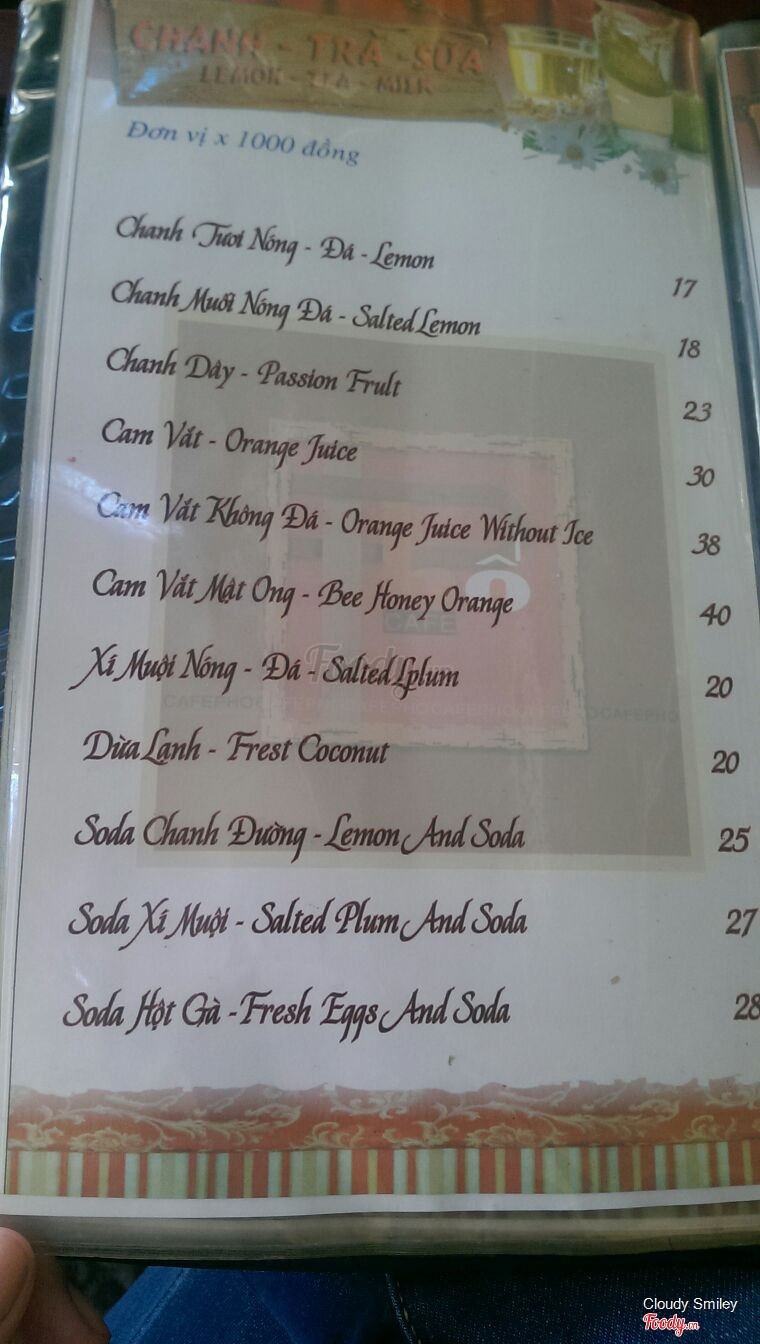 CHANH - TRÀ - SỮA
LEMON - TEA - MILK
Đơn vị x 1000 đồng
Chanh Tươi Nóng - Đá - Lemon 17
Chanh Muối Nóng Đá - Salted Lemon 18
Chanh Dây - Passion Frult 23
Cam Vắt - Orange Juice 30
Cam Vắt Không Đá - Orange Juice Without Ice 38
Cam Vắt Mật Ong - Bee Honey Orange 40
Xí Muội Nóng - Đá - Salted Lplum 20
Dừa Lạnh - Frest Coconut 20
Soda Chanh Đường - Lemon And Soda 25
Soda Xí Muội - Salted Plum And Soda 27
Soda Hột Gà - Fresh Eggs And Soda 28
CAFE
Foody.vn
Cloudy Smiley
Foody.vn